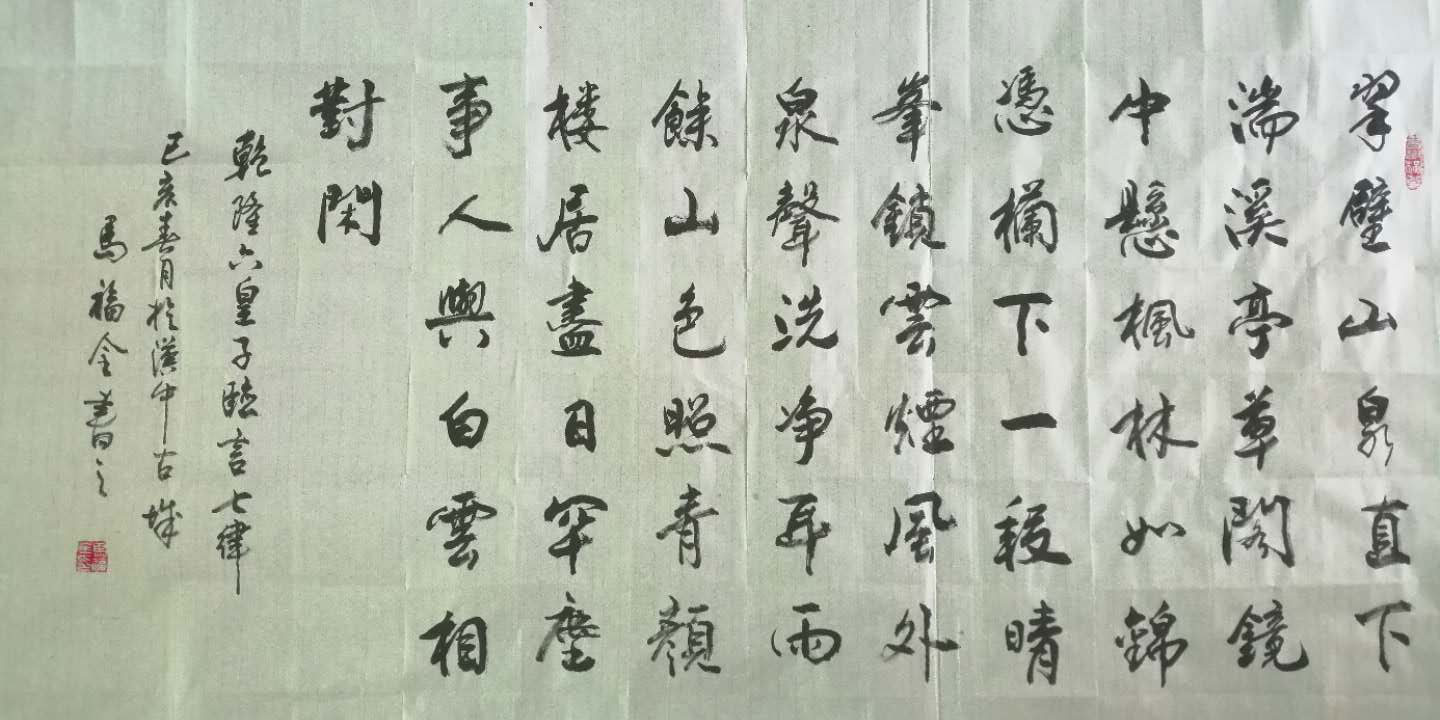 翠壁山泉直下
湍溪亭草閣鏡
中懸楓林如錦
憑欄下一段晴
峯鎖雲煙風外
泉聲洗净耳雨
餘山色照青顏
楼居盡日罕塵
事人與白雲相
對閑
乾隆六皇子 言七律
己亥春月於漢中古城
馬福全書之